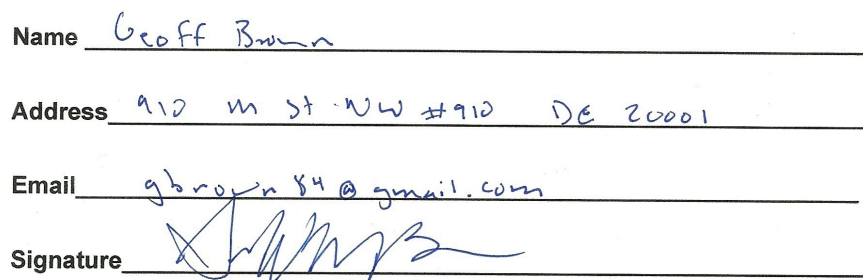 Name Geoff Brown
Address 910 M St NW #910 DC 20001
Email gbrown84@gmail.com
Signature